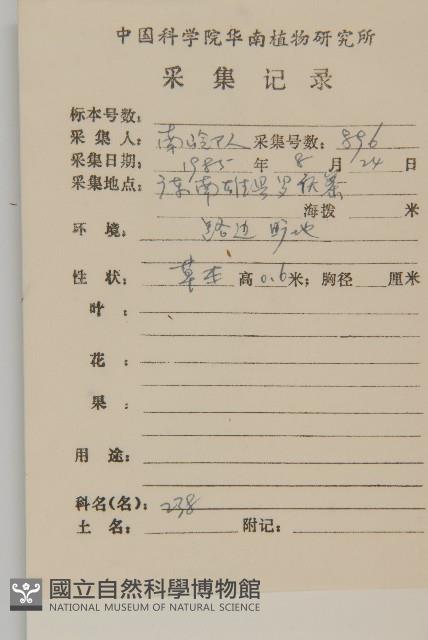 中国科学院华南植物研究所
采集记录
标本号数:
采集人: 南岭队 采集号数: 896
采集日期: 1985 年 8 月 24 日
采集地点: 广东南雄县罗
海拨 米
环境: 路边 旷地
性状: 草本 高 0.6 米; 胸径 厘米
叶:
花:
果:
用途:
科名(名): 238
土名: 附记:
國立自然科學博物館
NATIONAL MUSEUM OF NATURAL SCIENCE